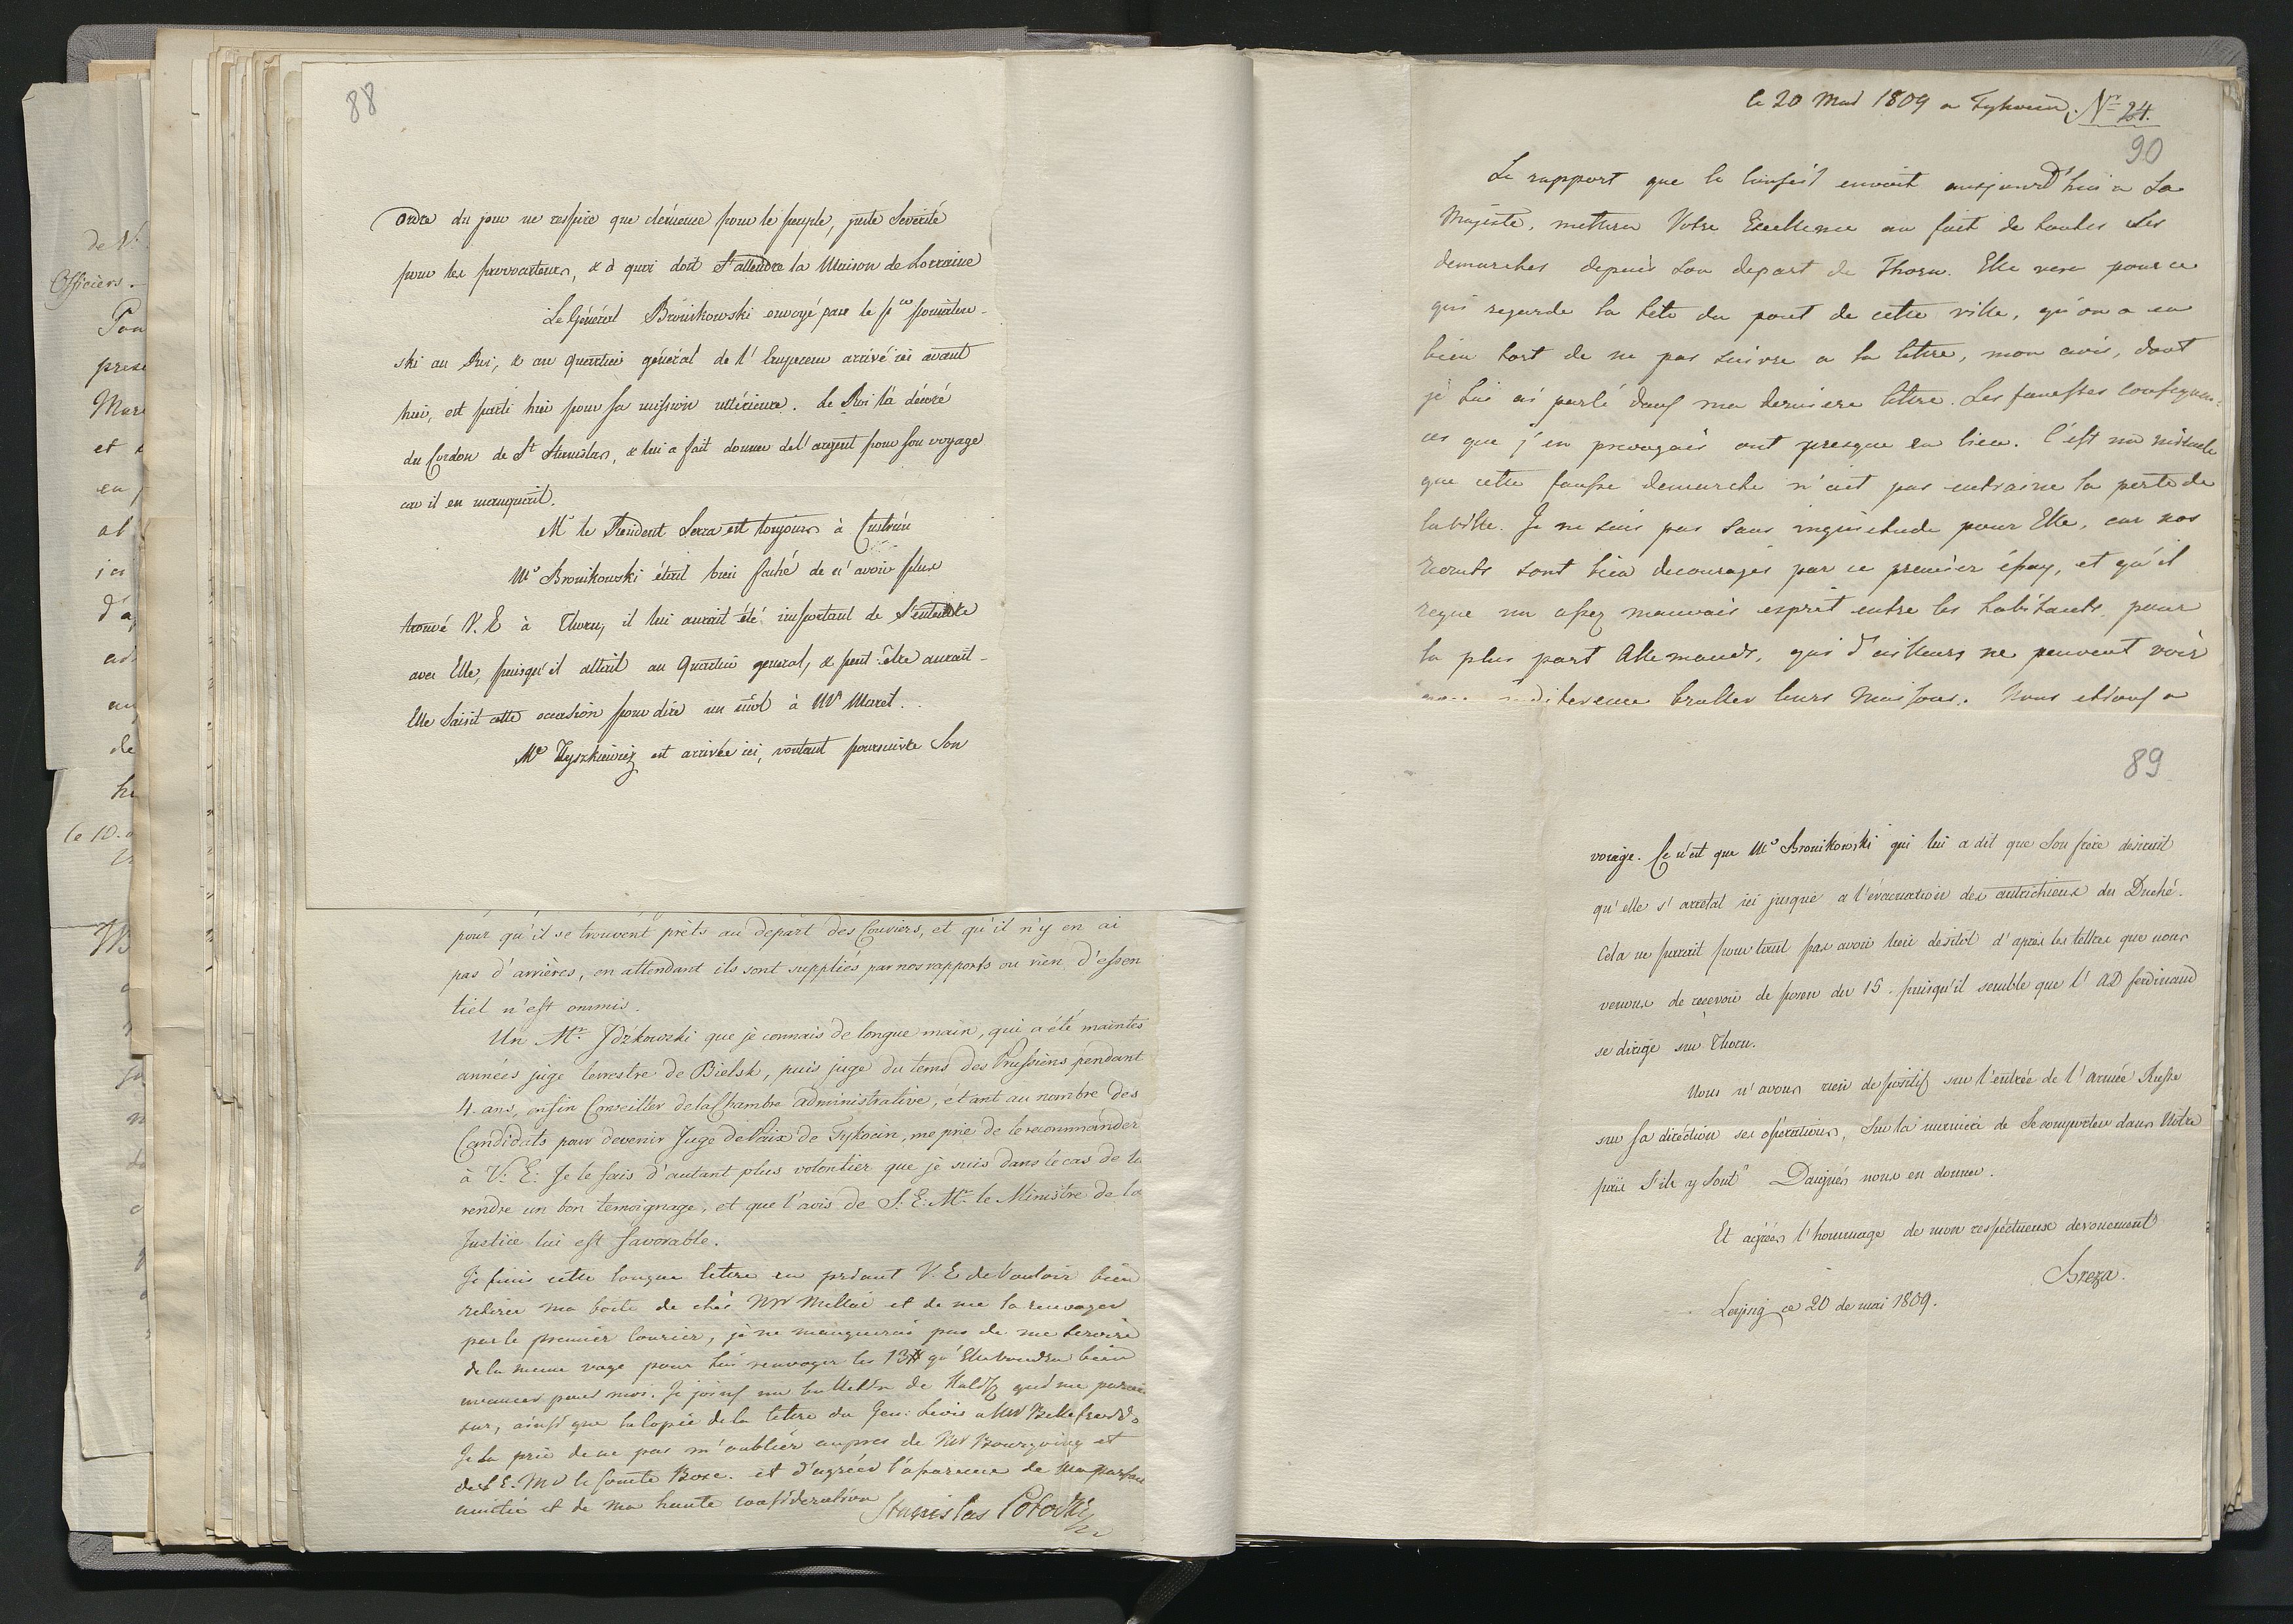 88
ordre du jour ne respire que clémence pour le peuple, juste severité
pour les provocateurs, & à quoi doit s'attendre la Maison de Lorraine
Le Général Bronikowski envoyé par le Pce Poniatow-
ski au Roi, & au Quartier général de l'Empereur arrivé ici avant
hier, est parti hier pour sa mission ultérieure. Le Roi l'a décoré
du Cordon de St Stanislas, & lui a fait donner de l'argent pour son voyage
car il en manquait.
Mr le Resident Serra est toujours à Custrin
Mr Bronikowski était bien faché de n'avoir plus
trouvé V. E à Thorn, il lui aurait été important de s'entendre
avec Elle, puisqu'il allait au Quartier general, & peut être aurait-
Elle saisit cette occasion pour dire un mot à Mr Maret.
Me Tyszkiewicz est arrivée ici, voulant poursuivre Son
pour qu'il se trouvent prêts au départ des Couriers, et qu'il n'y en ai
pas d'arrières, en attendant ils sont suppliés par nos rapports ou rien d'essen
tiel n'est ommis.
Un Mr. Idzkowski que je connais de longue main, qui a été maintes
années juge terrestre de Bielsk, puis juge du tems des Prussiens pendant
4. ans, enfin Conseiller de la Chambre administrative, étant au nombre des
Candidats pour devenir Juge de Paix de Tykocin, me prie de le recommander
à V. E. Je le fais d'autant plus volontier que je suis dans le cas de lui
rendre un bon temoignage, et que l'avis de S. E. Mr. le Ministre de la
Justice lui est favorable.
Je finis cette longue lettre en priant V. E de Vouloir bien
retirer ma boite de chés Mr et de me la renvoyer
par le premier courier, je ne manquerai pas de me servire
de la meme voye pour Lui renvoyer les 13# qu'Elle voudra bien
avancer pour moi. Je joins un bulletin de qui me parait
sur, ainsi que la Copie de la lettre du Gen: a Mr
Je La prie de ne pas m'oublier aupres de Mr Bourgoing et
de S E. Mr le Comte Bose. et d'agréer l'assurance de Ma parfaite
amitié et de ma haute consideration Stanislas Potocki
le 20 Mai 1809 a Tykocin. Nr 24.
90
Le rapport que le Conseil envoit aujourd'hui a Sa
Majesté, mettera Votre Excellence au fait de toutes Ses
demarches depuis Son depart de Thorn. Elle vera pour ce
qui regarde la tête du pont de cette ville, qu'on a eu
bien tort de ne pas suivre a la lettre, mon avis, dont
je Lui ai parlé dans ma derniere lettre. Les funestes consequen-
ces que j'en prevoyais ont presque eu lieu. C'est un miracle
que cette fausse demarche n'ait pas entrainé la perte de
la ville. Je ne suis pas sans inquietude pour Elle, car nos
recruts sont bien decouragés par ce premier éssay, et qu'il
regne un assez mauvais esprit entre les habitants, pour
la plus part Allemands, qui d'ailleurs ne peuvent voir
avec indiference bruller leurs Maisons. Nous etions a
89
voiage. Ce n'est que Mr Bronikowski qui lui a dit que Son frère desirait
qu'elle s'arretat ici jusque a l'évacuation des autrichiens du Duché.
Cela ne parait pour tant pas avoir lieu desitot d'après les lettres que nous
venons de recevoir de Posen du 15. puisqu'il semble que l'AD ferdinand
se dirige sur Thorn.
Nous n'avons rien de positif sur l'entrée de l'Armée Russe
sur sa direction ses opérations, Sur la maniere de Se comporter dans Notre
païs S'ils y sont. Daignés nous en donner.
Et agréés l'hommage de mon respectueux devouement
Breza.
Leipzig ce 20 de mai 1809.
de V.
Officiers.
et
en
de
le 10.